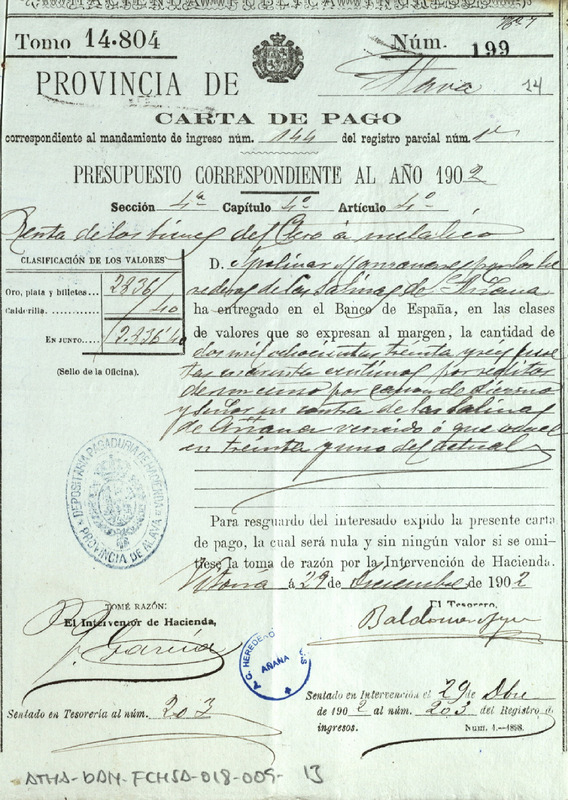 HACIENDA PUBLICA INGRESO
Tomo 14.804
Núm. 199
PROVINCIA DE Alava 14
CARTA DE PAGO
correspondiente al mandamiento de ingreso núm. 144 del registro parcial núm. 1º
PRESUPUESTO CORRESPONDIENTE AL AÑO 1902
Sección 4ª Capítulo 4º Artículo 4º
Renta de los bienes del Clero á metálico
CLASIFICACIÓN DE LOS VALORES
Oro, plata y billetes... 2836
Calderilla... 40
EN JUNTO... 2.836 40
(Sello de la Oficina).
D. Apolinar Manzanares por los he
rederos de las Salinas de Añana
ha entregado en el Banco de España, en las clases
de valores que se expresan al margen, la cantidad de
dos mil ochocientas treinta y seis pese
tas cuarenta centimos por reditos
de un censo por canon de diezmo
contra de las Salinas
de Añana vencido ó que vence
en treinta y uno del actual
DEPOSITARIA PAGADURIA DE HACIENDA
PROVINCIA DE ALAVA
Para resguardo del interesado expido la presente carta
de pago, la cual será nula y sin ningún valor si se omi-
tiese la toma de razón por la Intervención de Hacienda.
Vitoria á 29 de Diciembre de 1902
TOMÉ RAZÓN:
El Interventor de Hacienda,
García
El Tesorero,
Baldomero
G. HEREDEROS
AÑANA
Sentado en Tesorería al núm. 203
Sentado en Intervención el 29 de Dbre
de 1902 al núm. 203 del Registro de
ingresos.
Núm. 1.—1898.
ATHA-DAH-FCHSA-018-009-13